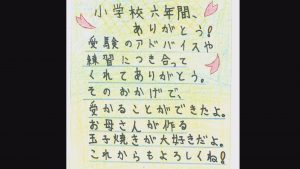 小学校六年間、
ありがとう!
受験のアドバイスや
練習につき合って
くれてありがとう。
そのおかげで、
受かることができたよ。
お母さんが作る
玉子焼きが大好きだよ。
これからもよろしくね!